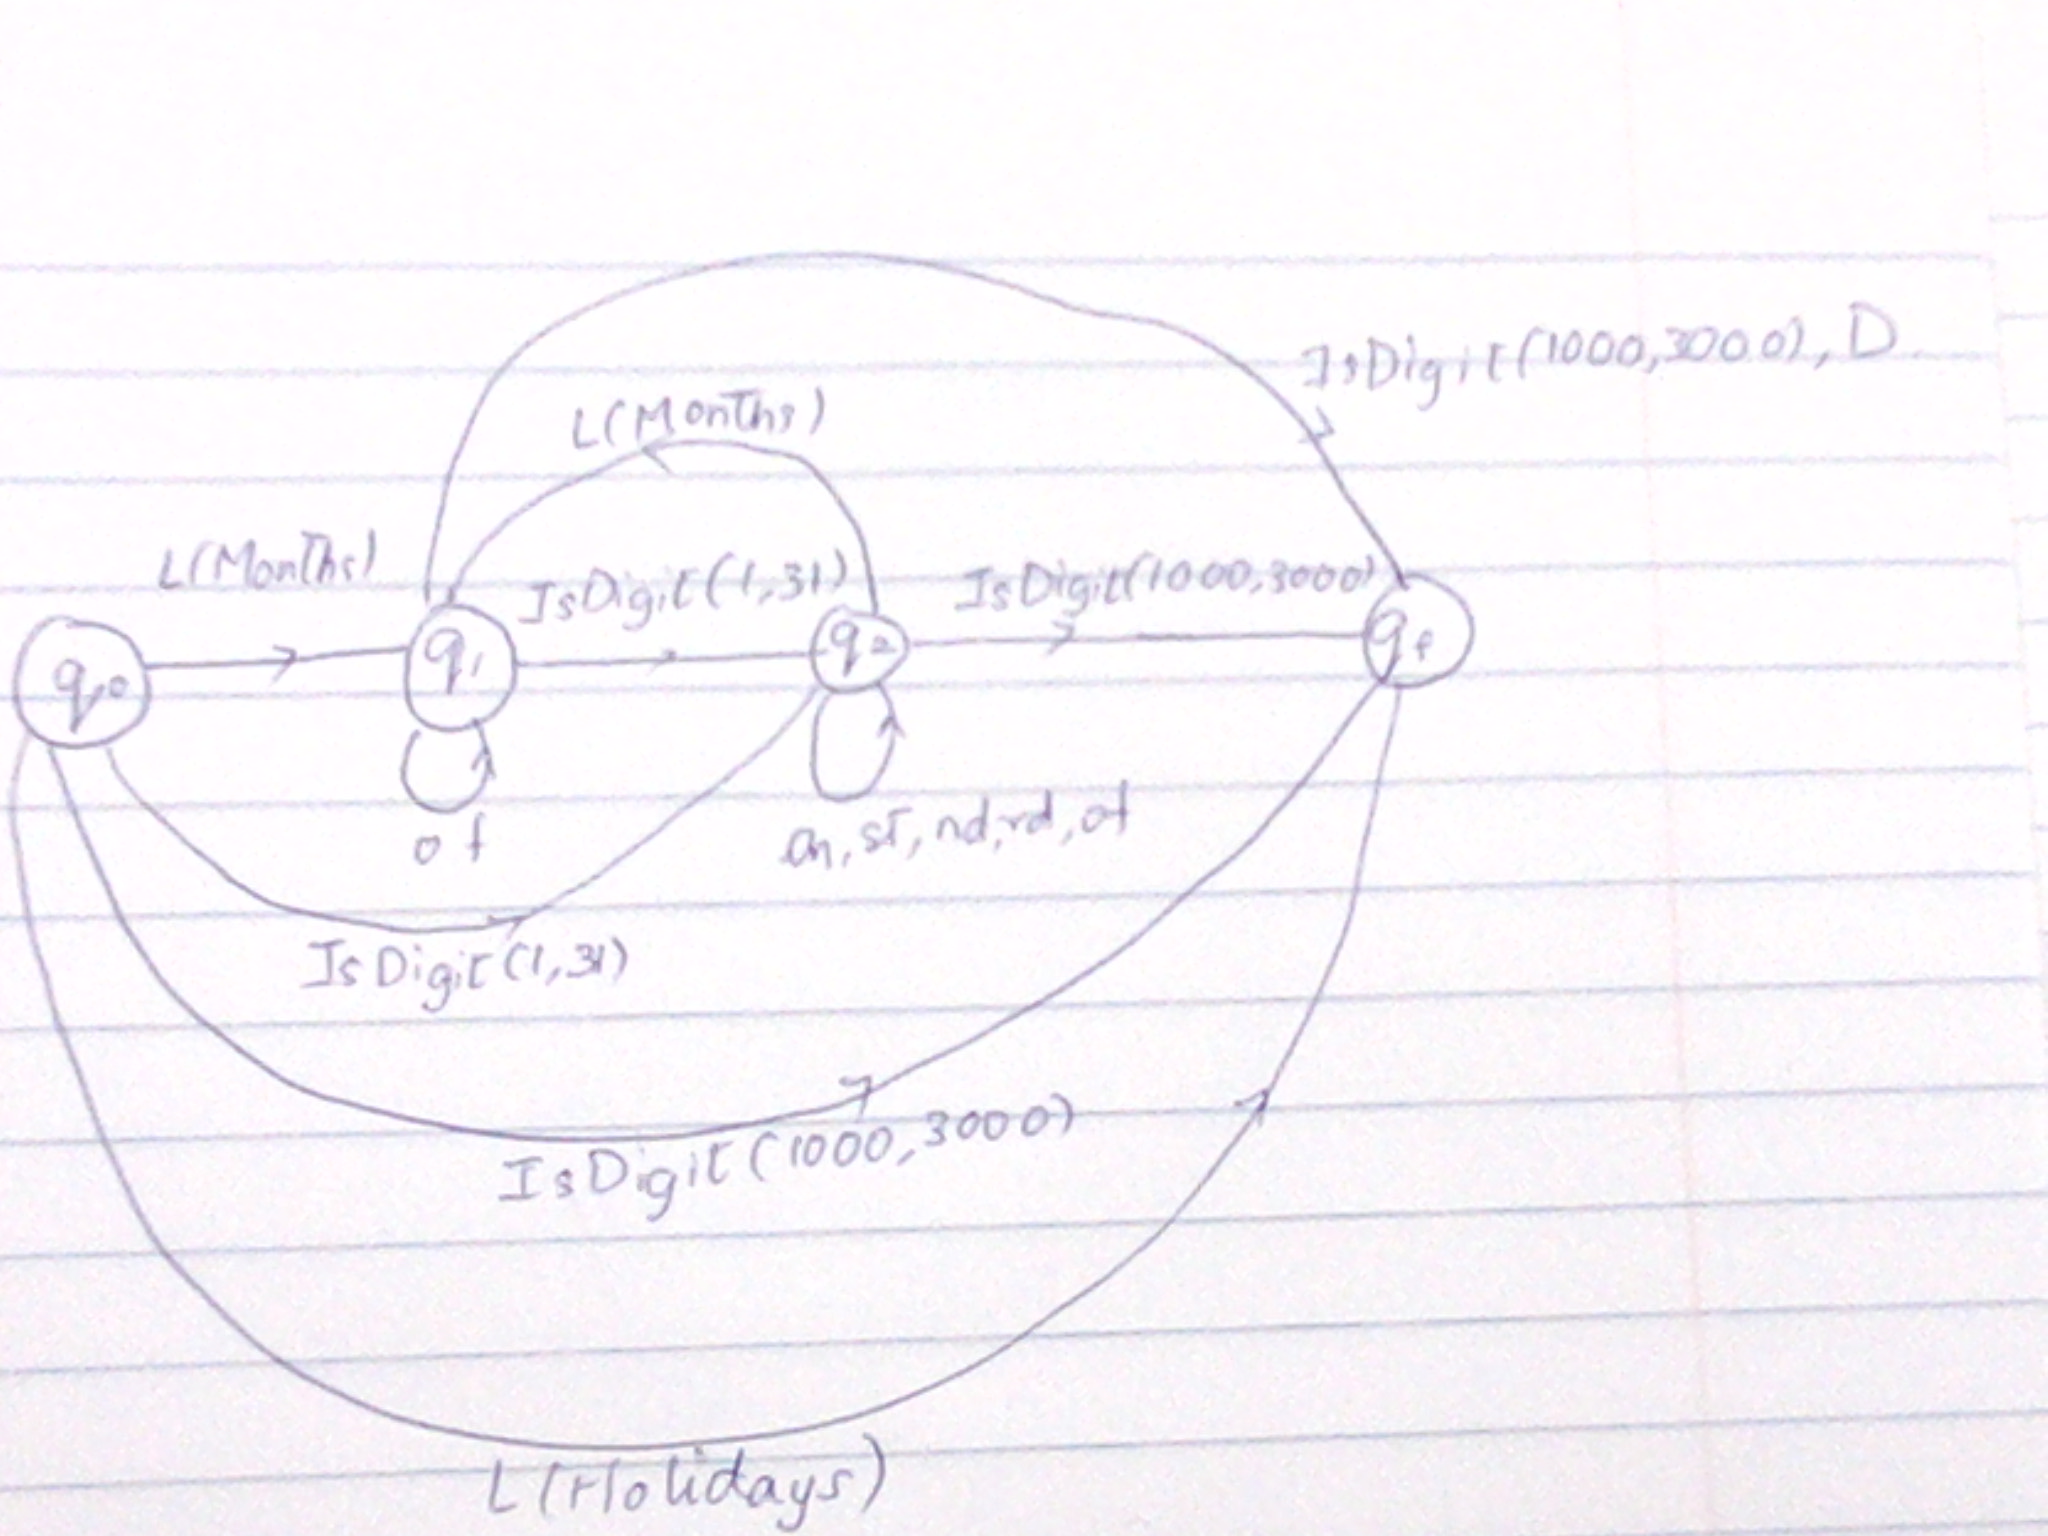 IsDigit(1000,3000), D
L(Months)
L(Months)
IsDigit(1,31)
IsDigit(1000,3000)
q0
q1
q2
qf
of
on, st, nd, rd, of
IsDigit(1,31)
IsDigit(1000,3000)
L(Holidays)